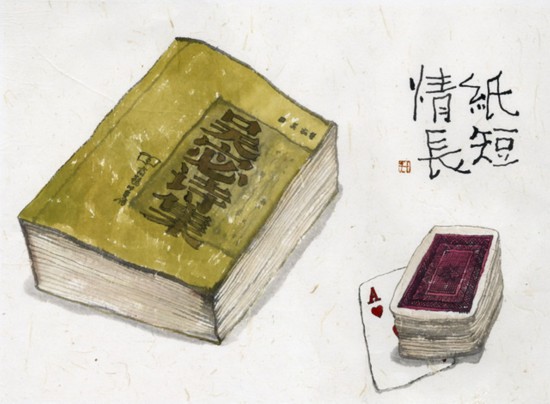 紙短
情長
吳宓詩集
A